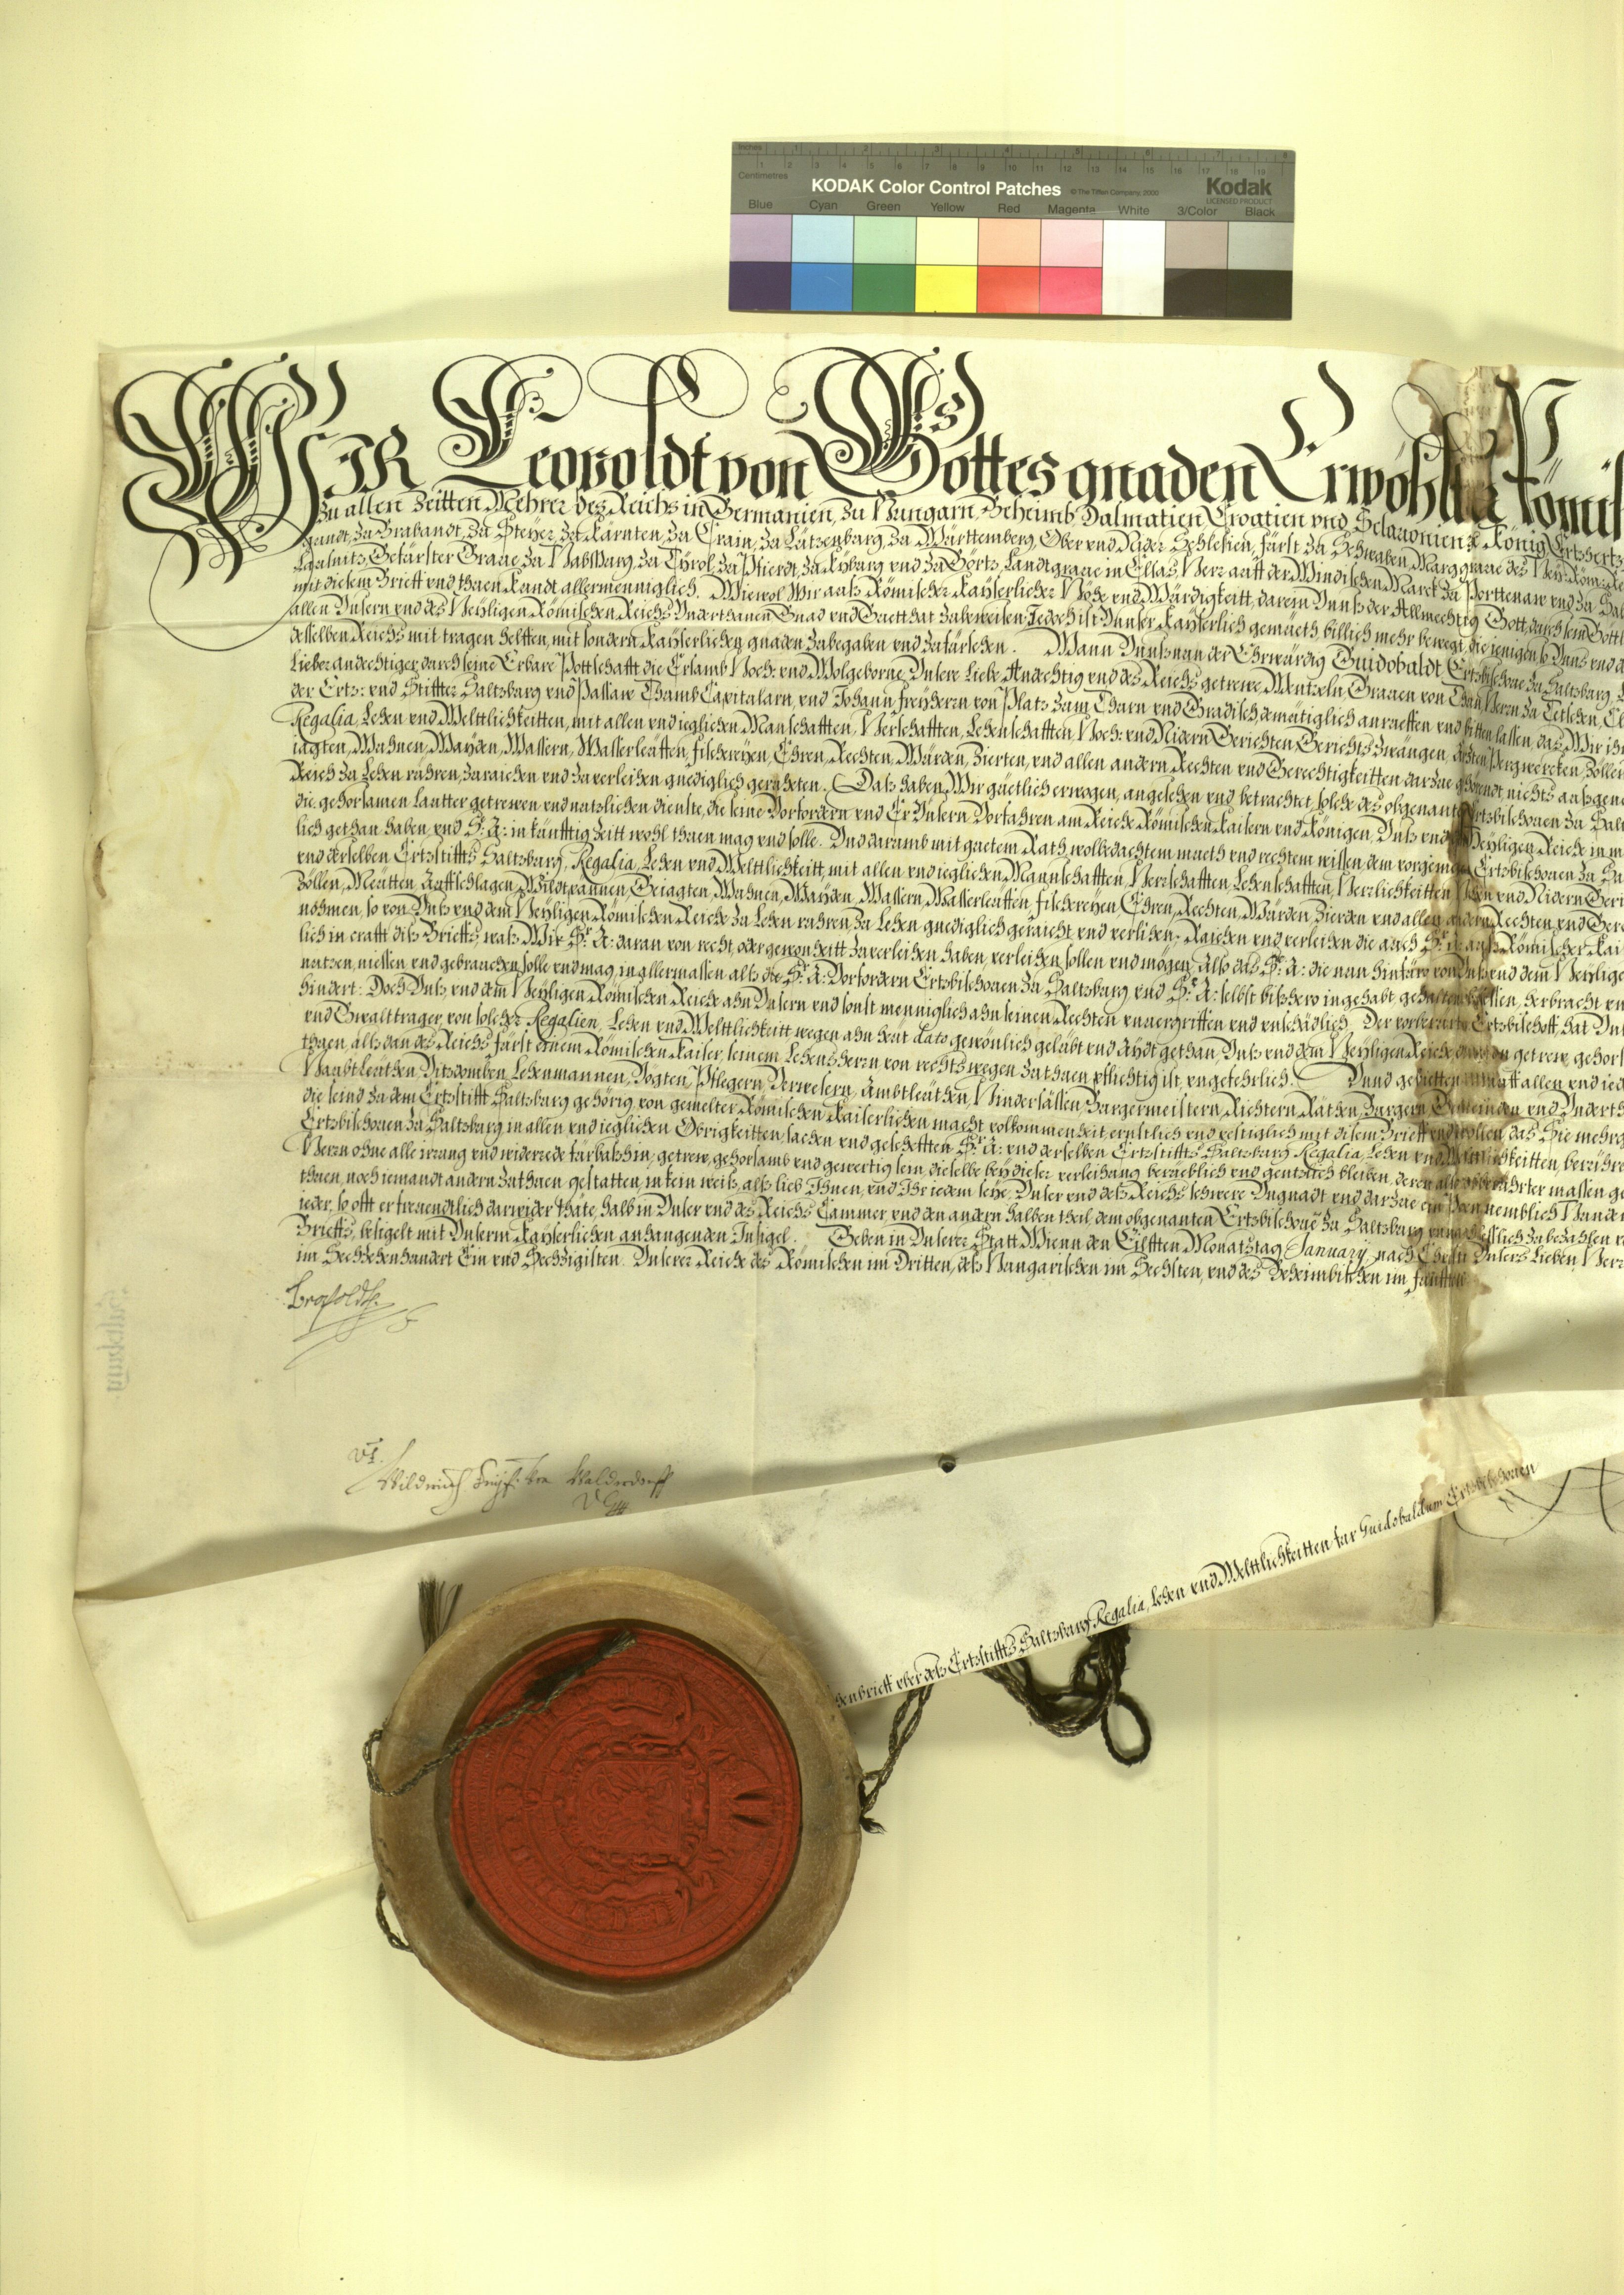 Inches 1 2 3 4 5 6 7 8
Centimetres 1 2 3 4 5 6 7 8 9 10 11 12 13 14 15 16 17 18 19
KODAK Color Control Patches © The Tiffen Company, 2000 Kodak
LICENSED PRODUCT
Blue Cyan Green Yellow Red Magenta White 3/Color Black
WJR Leopoldt von Gottes gnaden Erwöhlter Römis
zu allen Zeitten Mehrer des Reichs in Germanien, zu Hungarn, Beheimb Dalmatien Croatien vnd Sclauonien König Ertzhertz
gundt, zu Brabandt, zu Steyer, zu Kärnten, zu Crain, zu Lützenburg, zu Württemberg, Ober vnd Nider Schlesien, fürst zu Schwaben, Marggraue des Heyl: Röm:
Lausnitz, Gefürster Graue zu Habsburg, zu Tÿrol, zu Pfierdt, zu Kÿburg vnd zu Görtz, Landtgraue in Elsas, Herr auff der Windischen Marck zu Porttenaw vnd zu Sal
mit diesem Brieff vnd thuen kundt allermenniglich. Wiewol Wir auß Römischer Kaÿserlicher Höhe vnd Würdigkeitt, darein Vnnß der Allmechtig Gott, durch sein Göttl
allen Vnsern vnd des Heÿligen Römischen Reichs Vnderthanen Gnad vnd Guetthat zubeweisen, Jedoch ist Vnnser Kaÿserlich gemüeth billich mehr bewegt, die jenigen so Vnns vnd d
desselben Reichs mit tragen helffen, mit sondern Kaÿserlichen gnaden zubegaben vnd zufürsehen. Wann Vnnß nun der Ehrwürdig Guidobaldt Ertzbischoue zu Saltzburg,
Lieber andechtiger, durch seine Erbare Pottschafft die Ersamb Hoch: vnd Wolgeborne Vnsere Liebe Andechtig vnd des Reichs getrewe, Wentzeln Grauen von Thun Herrn zu Tetschen,
der Ertz: vnd Stiffter Saltzburg vnd Passaw Thumb Capitularn, vnd Johann freÿherrn von Platz zum Thurn vnd Gradisch, demütiglich anrueffen vnd bitten lassen, das Wir ih
Regalia, Lehen vnd Welttlichkeitten, mit allen vnd ieglichen Manschafften, Herschafften, Lehenschafften, Hoch: vnd Nidern Gerichten Gerichts zwängen, Pergwercken, Zöllen
iagten, Wuhnen, Waÿden, Wassern, Wasserleuffen, fischereÿen, Ehren, Rechten, Würden, Zierten, vnd allen andern Rechten vnd Gerechtigkeitten darzue gehörendt nichts außgen
Reich zu Lehen rühren, zuraichen vnd zuverleihen gnediglich geruheten. Daß haben Wir güetlich erwogen, angesehen vnd betrachtet, solche des obgenanten Ertzbischouen zu Salt
die gehorsamen lautter getrewen vnd nutzlichen dienste, die seine Vorfordern vnd Er Vnsern Vorfahren am Reiche Römischen Kaisern vnd Königen, Vnß vnd Heÿligen Reiche in m
lich gethan haben, vnd Sr: A: in künfftig Zeitt wohl thuen mag vnd solle. Vnd darumb mit guetem Rath wolbedachtem mueth vnd rechtem wissen, dem vorgemelten Ertzbischouen zu Sa
vnd derselben Ertzstiffts Saltzburg, Regalia, Lehen vnd Welttlichkeitt, mit allen vnd ieglichen Mannschafften, Herrschafften, Lehenschafften, Herrlichkeitten, Hohen vnd Nidern Geri
Zöllen, Meütten, Auffschlagen, Wildtpannen, Geiagten, Wuhnen, Waÿden, Wassern, Wasserleuffen, fischereÿen, Ehren, Rechten, Würden Zierden vnd allen andern Rechten vnd Gere
nohmen, so von Vnß vnd dem Heÿligen Römischen Reiche zu Lehen rühren, zu Lehen gnediglich geraicht vnd verlihen, Raichen vnd verleihen die auch Sr: A: auß Römischer Kai
lich in crafft diß Brieffs, waß Wir Sr: A: daran von recht, oder gewonheitt zuverleihen haben, verleihen sollen vnd mögen, Also das Sr: A: die nun hinfüro von Vnß vnd dem Heÿlige
nutzen, niessen vnd gebrauchen solle vnd mag, in allermassen alß die Sr: A: Vorfordern Ertzbischouen zu Saltzburg vnd Sr: A: selbst bißhero ingehabt, gehalten besessen, herbracht vn
hindert: Doch Vnß vnd dem Heÿligen Römischen Reiche ahn Vnsern vnd sonst menniglich ahn seinen Rechten vnuergriffen vnd vnschädlich. Der vorberürte Ertzbischoff, hat Vn
vnd Gwalttrager, von solcher Regalien, Lehen vnd Welttlichkeitt wegen ahn heut dato gewönlich gelübt vnd Aÿdt gethan, Vnß vnd dem Heÿligen Reiche, getrew, gehors
thuen, alß dan des Reichs fürst einem Römischen Kaiser, seinem Lehensherrn von rechts wegen zu thuen pflichtig ist, vngefehrlich. Vnnd gebietten darauff allen vnd ied
Haubtleüthen, Vitzdomben, Lehenmannen, Vogten, Pflegern, Verwesern, Ambtleüthen, Hindersässen, Burgermeistern, Richtern, Räthen, Burgern, Gemeinden vnd Vnderth
die seind zu dem Ertzstifft Saltzburg gehörig, von gemelter Römischen Kaiserlichen macht volkommenheit ernstlich vnd vestiglich mit disem Brieff vnd wollen, das Sie mehrg
Ertzbischouen zu Saltzburg in allen vnd ieglichen Obrigkeitten, sachen vnd geschefften, Sr: A: vnd derselben Ertzstiffts Saltzburg Regalia, Lehen vnd Welttlichkeitten, berühre
Herrn ohne alle irrung vnd widerrede fürbaßhin, getrew, gehorsamb vnd gewertig sein, dieselbe beÿ dieser verleihung berüeblich vnd gentzlich bleiben, deren also obberührter massen ge
thuen, noch iemandt andern zuthuen gestatten, in kein weiß, alß lieb Ihnen, vnd Ihr iedem seÿe, Vnser vnd deß Reichs schwere Vngnadt vnd darzue ein Poen nemblich Hunder
ieder, so offt er freuentlich darwider thäte, halb in Vnser vnd des Reichs Cammer, vnd den andern halben theil, dem obgenanten Ertzbischoue zu Saltzburg vnnachleßlich zubezahlen v
Brieffs, besigelt mit Vnserm Kaÿserlichen anhangenden Insigel. Geben in Vnserer Statt Wienn den Eilfften Monatstag January, nach Christi Vnsers Lieben Herr
im Sechtzehenhundert Ein vnd Sechzigisten. Vnserer Reiche des Römischen im Dritten, deß Hungarischen im Sechsten, vnd des Beheimbischen im fünfften
Leopoldt
Vt.
Wildrich freÿh: von Walderdorff
henbrieff vber deß Ertzstiffts Saltzburg Regalia, Lehen vnd Welttlichkeitten fur Guidobaldum Ertzbischouen